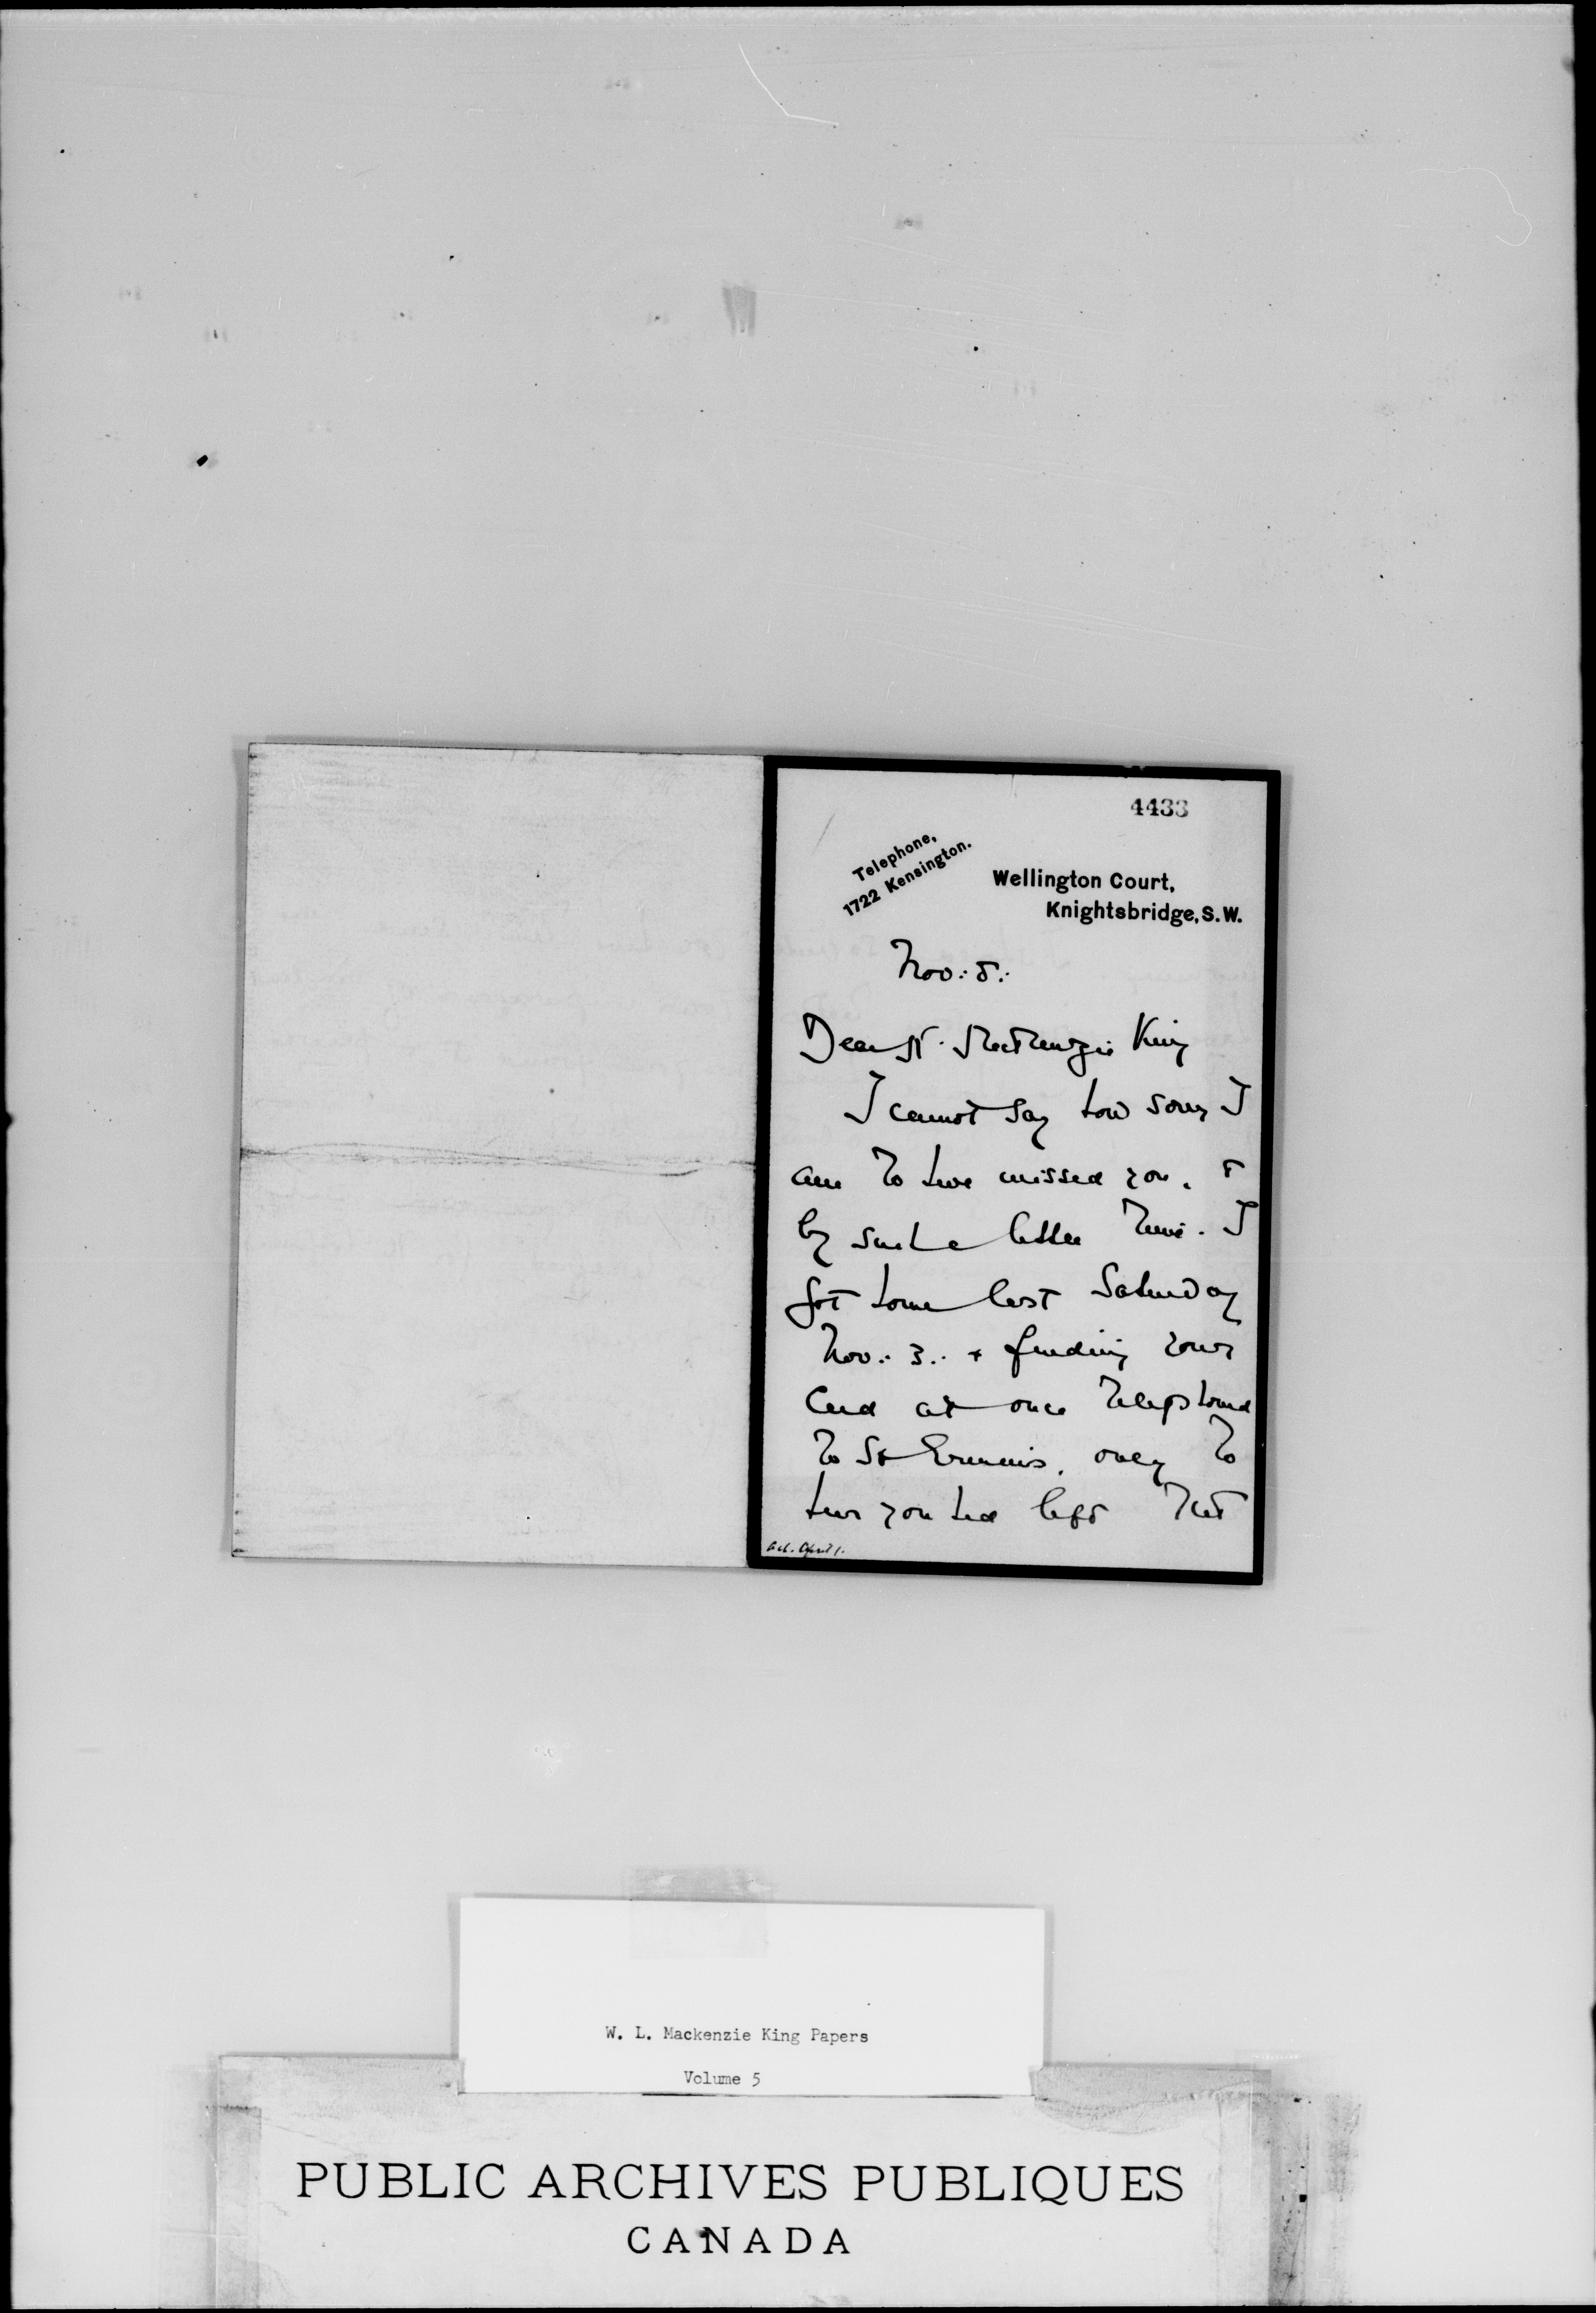 4433
Telephone,
1722 Kensington.
Wellington Court,
Knightsbridge, S.W.
Nov: 5:
Dear Mr. MacKenzie King
I cannot say how sorry I
am to have missed you, &
by such a little time. I
got home last Saturday
Nov: 3: & finding your
Card at once telephoned
to St Ermins, only to
hear you had left that
Ack. April 1.
W. L. Mackenzie King Papers
Volume 5
PUBLIC ARCHIVES PUBLIQUES
CANADA